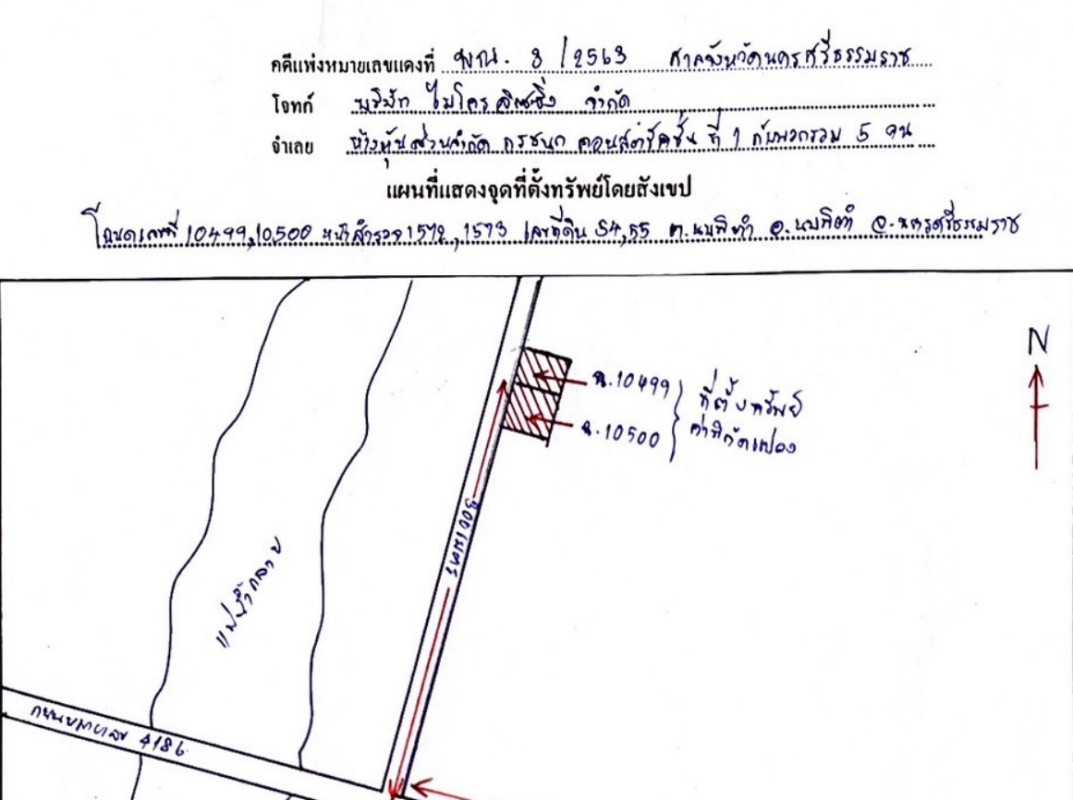 คดีแพ่งหมายเลขแดงที่ ผบ. 3 /2563 ศาลจังหวัดนครศรีธรรมราช
โจทก์ บริษัท ไมโครลิสซิ่ง จำกัด
จำเลย ห้างหุ้นส่วนจำกัด กรชนก คอนสตรัคชั่น ที่ 1 กับพวกรวม 5 คน
แผนที่แสดงจุดที่ตั้งทรัพย์โดยสังเขป
โฉนดเลขที่ 10499,10500 หน้าสำรวจ 1572,1573 เลขที่ดิน 54,55 ต.นบพิตำ อ.นบพิตำ จ.นครศรีธรรมราช
N
ฉ.10499
ที่ตั้งทรัพย์
ฉ.10500
ค่าพิกัดแปลง
แม่น้ำกลาย
ถนนหมายเลข 4186